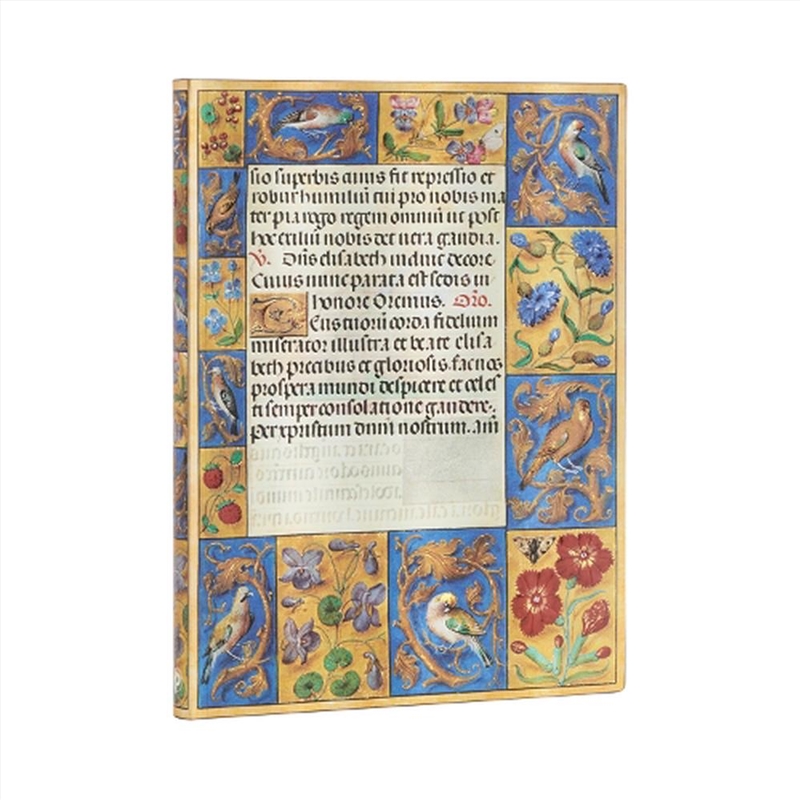 sio superbis cuius fit repressio et
robur humiliū tui pro nobis ma
ter pia rogo regem omniū ut post
hoc exiliū nobis det vera gaudia.
V. Dn̄s elisabeth induit decore.
Cuius nunc parata est sedis in
honore Oremus. Oro.
Deus tuorū corda fidelium
miserator illustra et beate elisa
beth precibus et gloriosis. fac nos
prospera mundi despicere et celes
ti semper consolatione gaudere.
Per xpristum dnm̄ nostrum. am̄